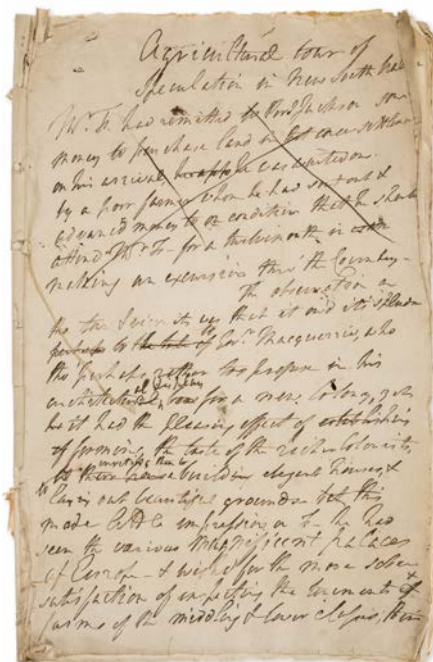 Agricultural tour of
Speculation in New South Wales
Mr. F. had remitted to Port Jackson some
money to purchase land
on his arrival, he was waited on
by a poor farmer whom he had sent out &
advanced money to on condition that he should
attend Mr F- for a twelvemonth in
making an excursion thro' the Country-
The observation on
the was that it owed its splendor
to Govr. Macquarrie, who
tho' perhaps rather too profuse in his
architectural for a new Colony, yet
it had the pleasing effect of
forming the taste of the richer Colonists,
to building elegant houses, &
laying out beautiful grounds but this
made little impression on F- he had
seen the various magnificent palaces
of Europe - & wished for the more sober
satisfaction of inspecting the tenements &
farms of the middling & lower classes, their